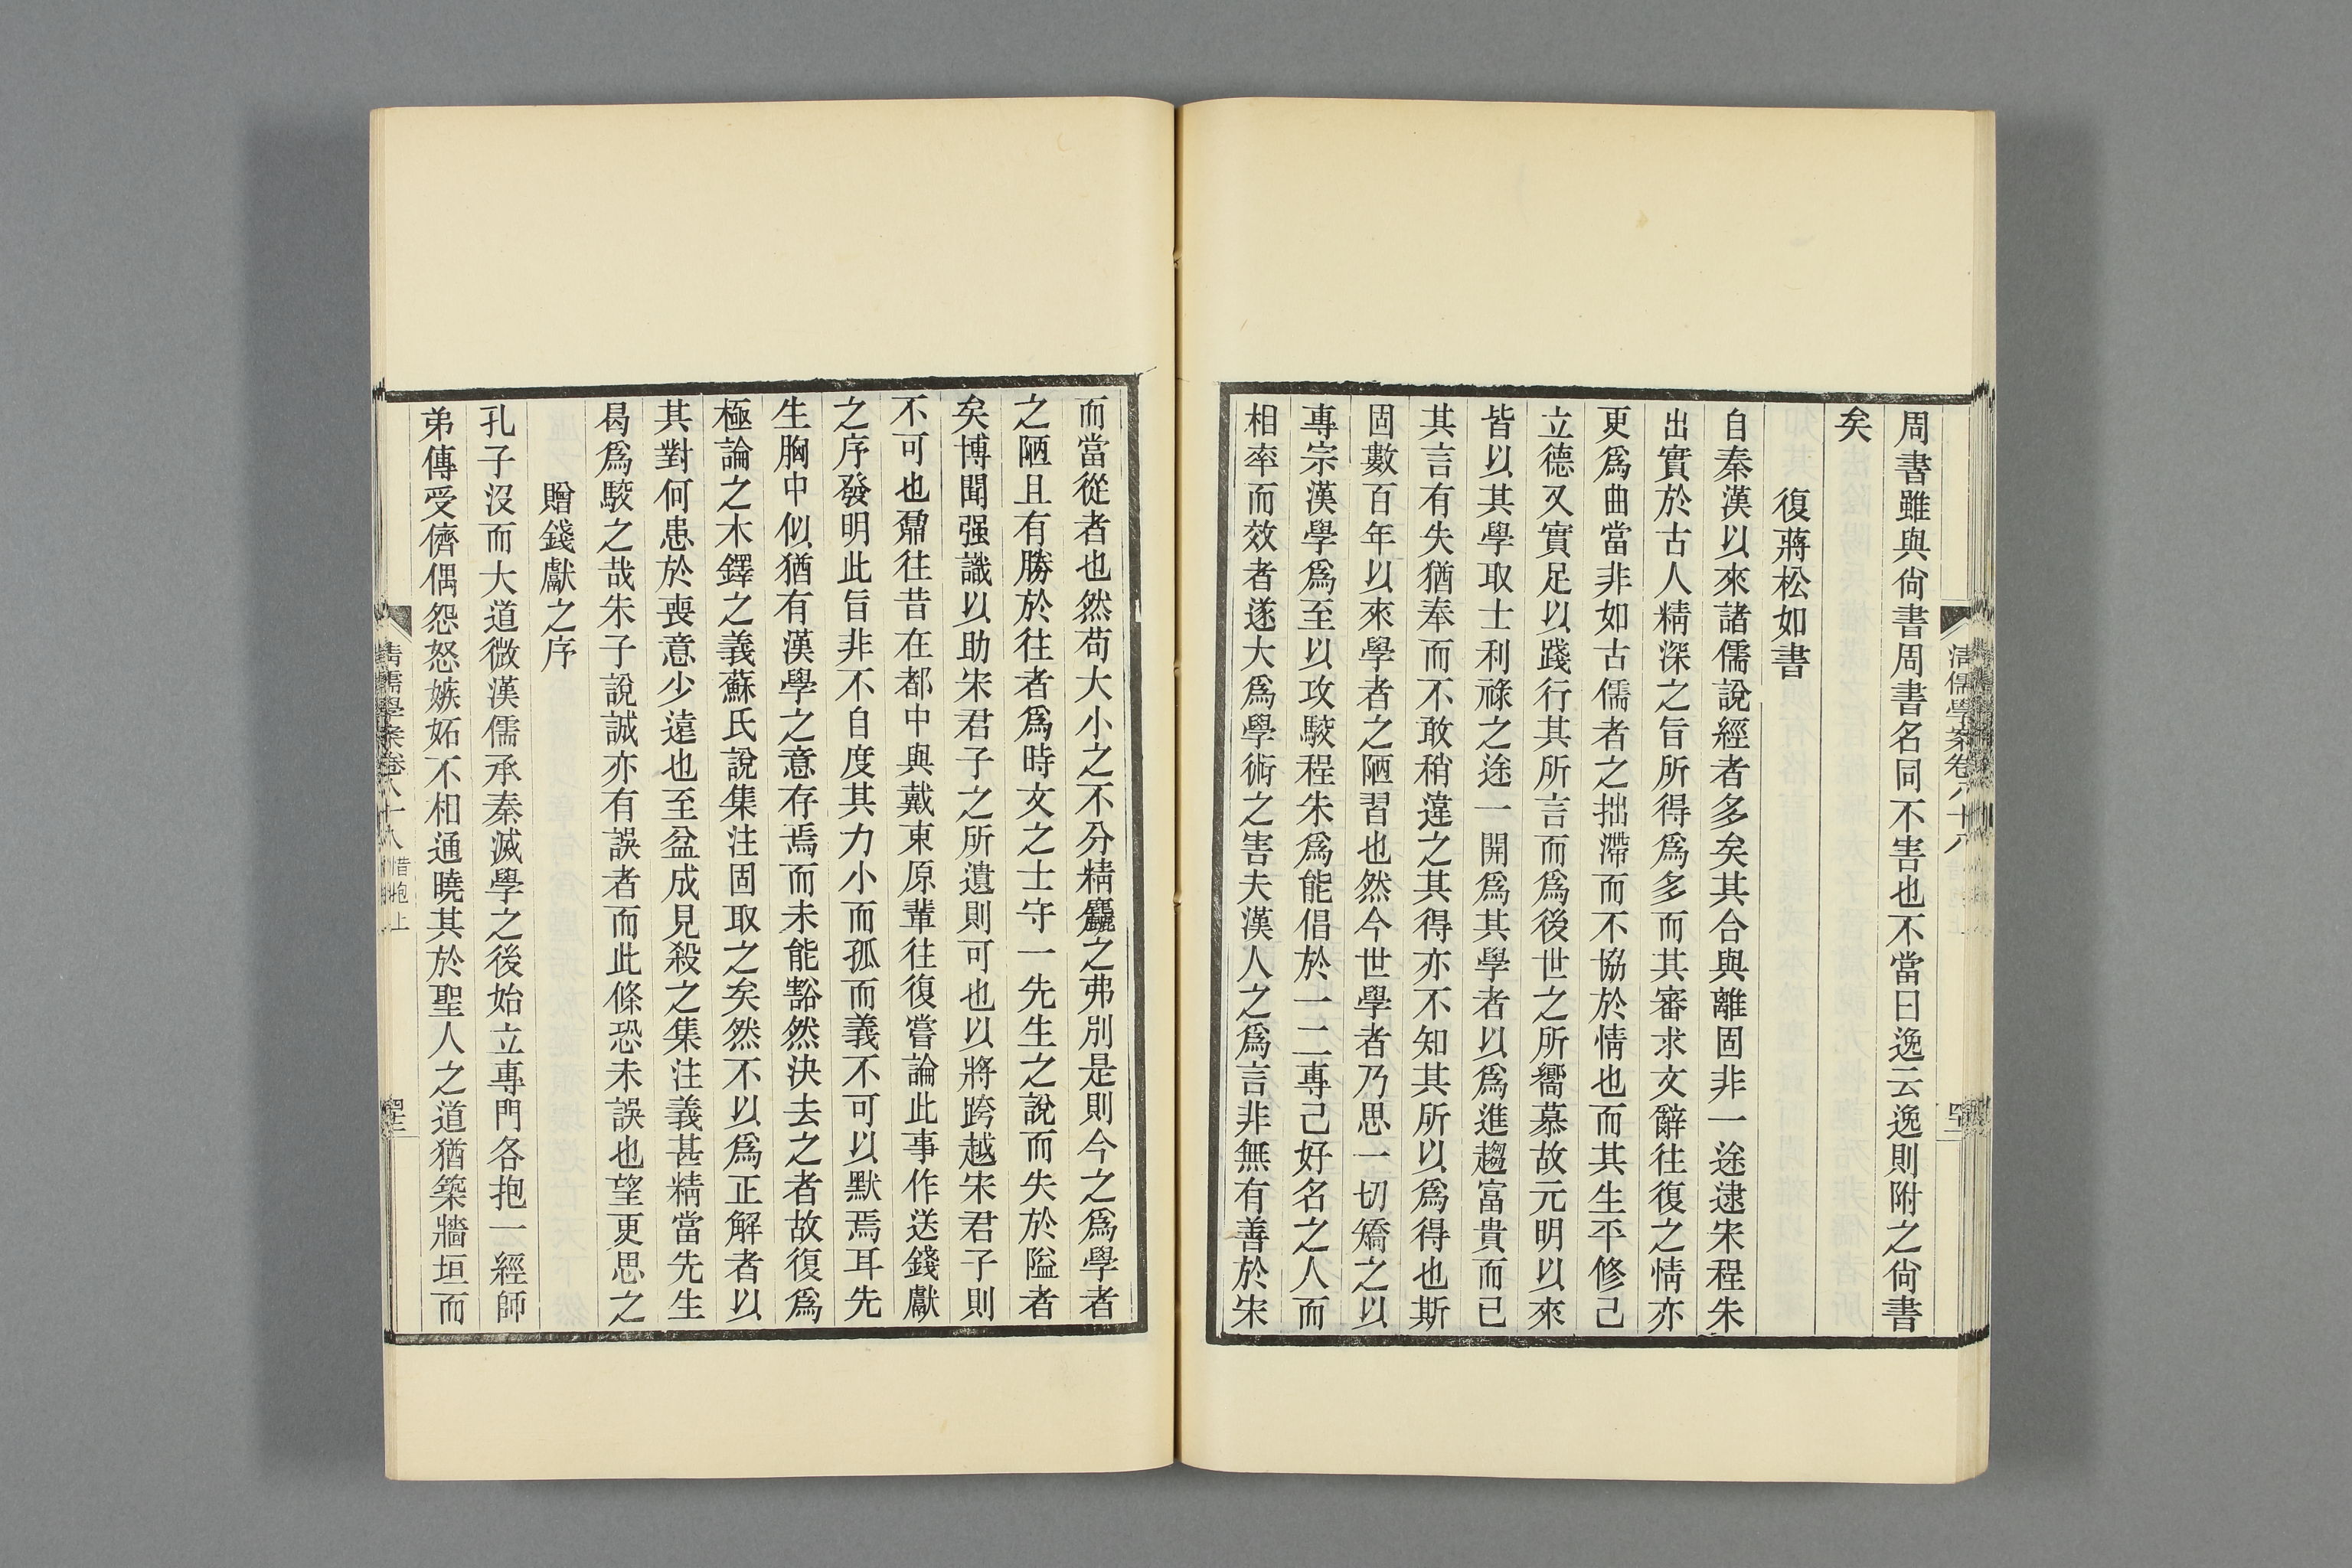 周書雖與尙書周書名同不害也不當曰逸云逸則附之尙書
矣
復蔣松如書
自秦漢以來諸儒說經者多矣其合與離固非一途逮宋程朱
出實於古人精深之旨所得爲多而其審求文辭往復之情亦
更爲曲當非如古儒者之拙滯而不協於情也而其生平修己
立德又實足以踐行其所言而爲後世之所嚮慕故元明以來
皆以其學取士利祿之途一開爲其學者以爲進趨富貴而已
其言有失猶奉而不敢稍違之其得亦不知其所以爲得也斯
固數百年以來學者之陋習也然今世學者乃思一切矯之以
專宗漢學爲至以攻駮程朱爲能倡於一二專己好名之人而
相率而效者遂大爲學術之害夫漢人之爲言非無有善於宋
清儒學案卷八十八
而當從者也然苟大小之不分精麤之弗別是則今之爲學者
之陋且有勝於往者爲時文之士守一先生之說而失於隘者
矣博聞强識以助宋君子之所遺則可也以將跨越宋君子則
不可也鼐往昔在都中與戴東原輩往復嘗論此事作送錢獻
之序發明此旨非不自度其力小而孤而義不可以默焉耳先
生胸中似猶有漢學之意存焉而未能豁然決去之者故復爲
極論之木鐸之義蘇氏說集注固取之矣然不以爲正解者以
其對何患於喪意少遠也至盆成見殺之集注義甚精當先生
曷爲駮之哉朱子說誠亦有誤者而此條恐未誤也望更思之
贈錢獻之序
孔子沒而大道微漢儒承秦滅學之後始立專門各抱一經師
弟傳受儕偶怨怒嫉妬不相通曉其於聖人之道猶築牆垣而
清儒學案卷八十八 惜抱上